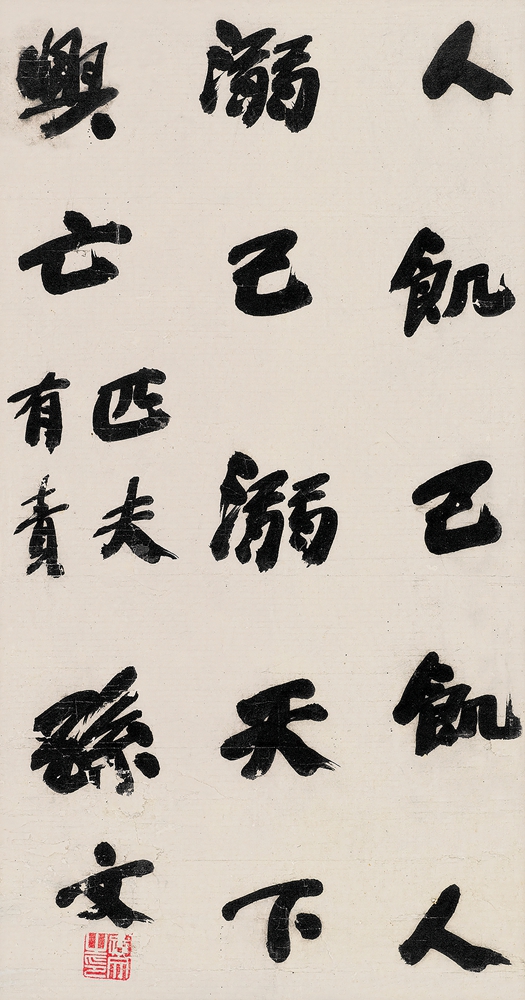 人飢己飢人
溺己溺天下
興亡匹夫有責
孫文
孫文之印